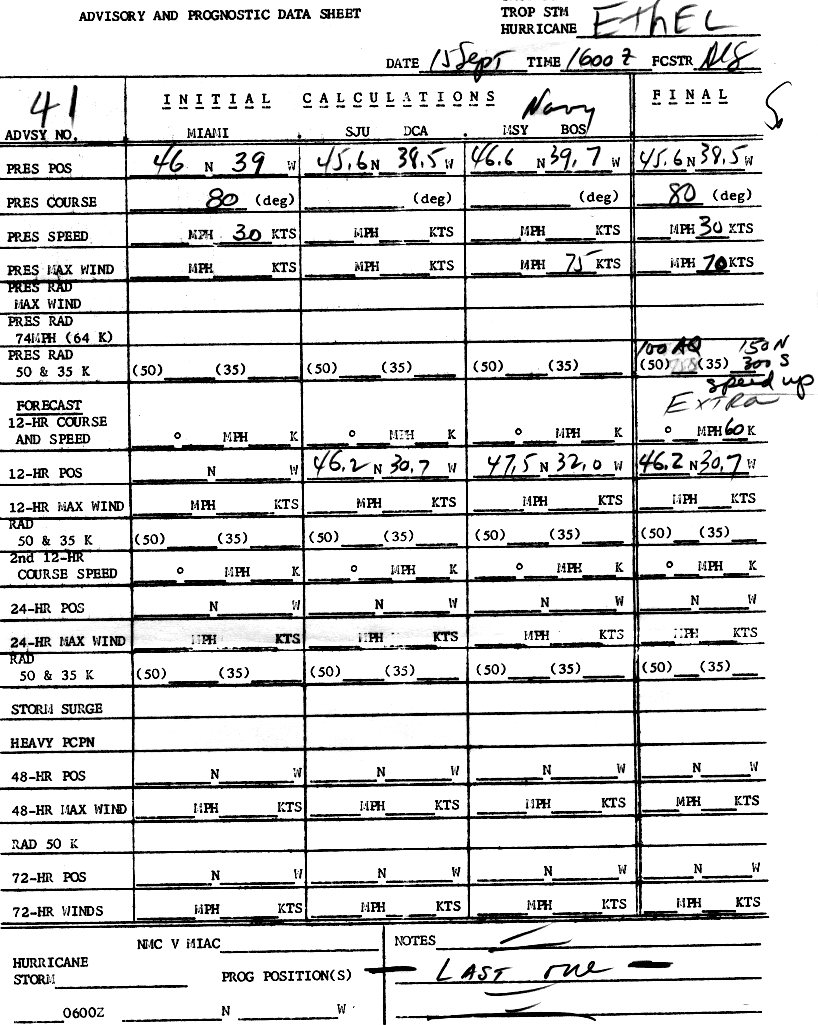 ADVISORY AND PROGNOSTIC DATA SHEET
TROP STM
HURRICANE EthEL
DATE 15 Sept TIME 1600 Z FCSTR
41 INITIAL CALCULATIONS Navy FINAL
ADVSY NO. MIAMI SJU DCA MSY BOS
PRES POS 46 N 39 W 45.6 N 38.5 W 46.6 N 39.7 W 45.6 N 38.5 W
PRES COURSE 80 (deg) (deg) (deg) 80 (deg)
PRES SPEED MPH 30 KTS MPH KTS MPH KTS MPH 30 KTS
PRES MAX WIND MPH KTS MPH KTS MPH 75 KTS MPH 70 KTS
PRES RAD
MAX WIND
PRES RAD
74MPH (64 K)
PRES RAD 100 AQ 150 N
50 & 35 K (50) (35) (50) (35) (50) (35) (50) (35) 300 S
speed up
FORECAST EXTRA
12-HR COURSE
AND SPEED ° MPH K ° MPH K ° MPH K ° MPH 60 K
12-HR POS N W 46.2 N 30.7 W 47.5 N 32.0 W 46.2 N 30.7 W
12-HR MAX WIND MPH KTS MPH KTS MPH KTS MPH KTS
RAD
50 & 35 K (50) (35) (50) (35) (50) (35) (50) (35)
2nd 12-HR
COURSE SPEED ° MPH K ° MPH K ° MPH K ° MPH K
24-HR POS N W N W N W N W
24-HR MAX WIND MPH KTS MPH KTS MPH KTS MPH KTS
RAD
50 & 35 K (50) (35) (50) (35) (50) (35) (50) (35)
STORM SURGE
HEAVY PCPN
48-HR POS N W N W N W N W
48-HR MAX WIND MPH KTS MPH KTS MPH KTS MPH KTS
RAD 50 K
72-HR POS N W N W N W N W
72-HR WINDS MPH KTS MPH KTS MPH KTS MPH KTS
NMC V MIAC NOTES
HURRICANE
STORM PROG POSITION(S) — LAST one —
0600Z N W